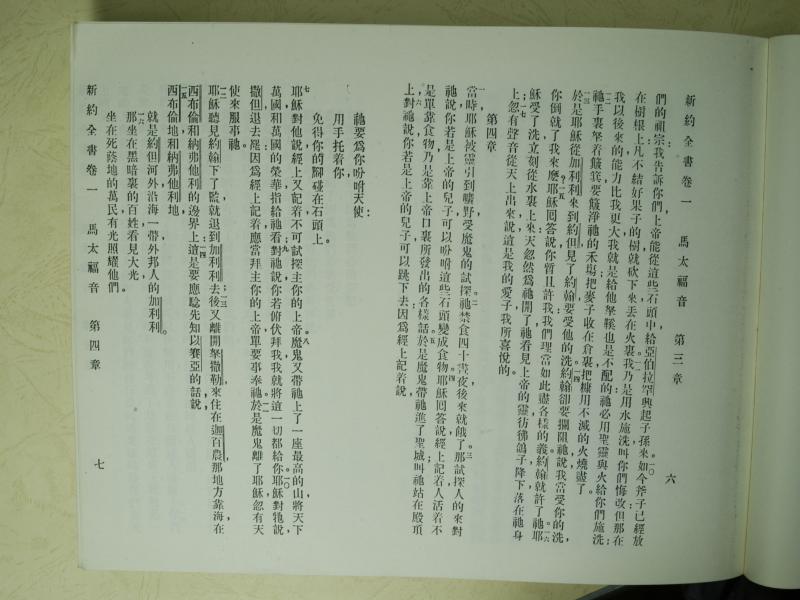 新約全書卷一 馬太福音 第三章 六
們的祖宗我告訴你們上帝能從這些石頭中給亞伯拉罕興起子孫來一〇如今斧子已經放
在樹根上凡不結好果子的樹就砍下來丟在火裏一一我乃是用水施洗叫你們悔改但那在
我以後來的能力比我更大我就是給他拏鞋也是不配的祂必用聖靈與火給你們施洗
一二祂手裏拏着簸箕要簸淨祂的禾場把麥子收在倉裏把糠用不滅的火燒盡了。
一三於是耶穌從加利利來到約但見了約翰要受他的洗一四約翰卻要攔阻祂說我當受你的洗
你倒就了我來麽一五耶穌回答說你暫且許我我們理當如此盡各樣的義約翰就許了祂一六耶
穌受了洗立刻從水裏上來天忽然爲祂開了祂看見上帝的靈彷彿鴿子降下落在祂身
上一七忽有聲音從天上出來說這是我的愛子我所喜悅的。
第四章
一當時耶穌被靈引到曠野受魔鬼的試探二祂禁食四十晝夜後來就餓了三那試探人的來對
祂說你若是上帝的兒子可以吩咐這些石頭變成食物四耶穌回答說經上記着人活着不
是單靠食物乃是靠上帝口裏所發出的各樣話五於是魔鬼帶祂進了聖城叫祂站在殿頂
上六對祂說你若是上帝的兒子可以跳下去因爲經上記着說
祂要爲你吩咐天使；
用手托着你，
免得你的腳碰在石頭上。
七耶穌對他說經上又記着不可試探主你的上帝八魔鬼又帶祂上了一座最高的山將天下
萬國和萬國的榮華指給祂看九對祂說你若俯伏拜我我就將這一切都給你一〇耶穌對牠說
撒但退去罷因爲經上記着應當拜主你的上帝單要事奉祂一一於是魔鬼離了耶穌忽有天
使來服事祂。
一二耶穌聽見約翰下了監就退到加利利去一三後又離開拏撒勒來住在迦百農那地方靠海在
西布倫和納弗他利的邊界上一四這是要應驗先知以賽亞的話說
一五西布倫地和納弗他利地，
就是約但河外沿海一帶外邦人的加利利。
一六那坐在黑暗裏的百姓看見大光，
坐在死蔭地的萬民有光照耀他們。
新約全書卷一 馬太福音 第四章 七